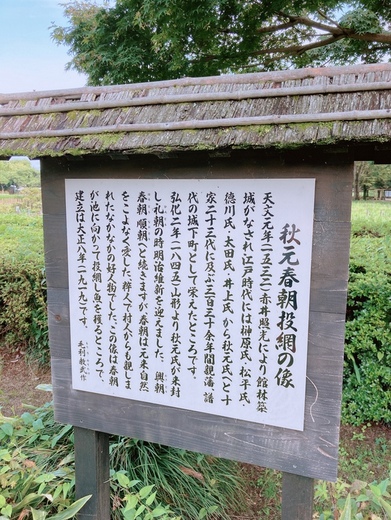 秋元春朝投網の像
天文元年（一五三二）赤井照光により館林築
城がなされ江戸時代には榊原氏、松平氏、
徳川氏、太田氏、井上氏から秋元氏へと十
家二十三代に及ぶ三百三十余年間観濤譜
代の城下町として栄えたところです。
弘化二年（一八四五）山形より秋元氏が来封
し礼朝の時明治維新を迎えました。興朝
春朝、順朝、と続きますが、春朝は元来自然
をこよなく愛した、粋人で村人からも親しま
れたなかなかの好人物でした。この像は春朝
が池に向かって投網し魚を獲るところで、
建立は大正八年（一九一九）です。
毛利教武作